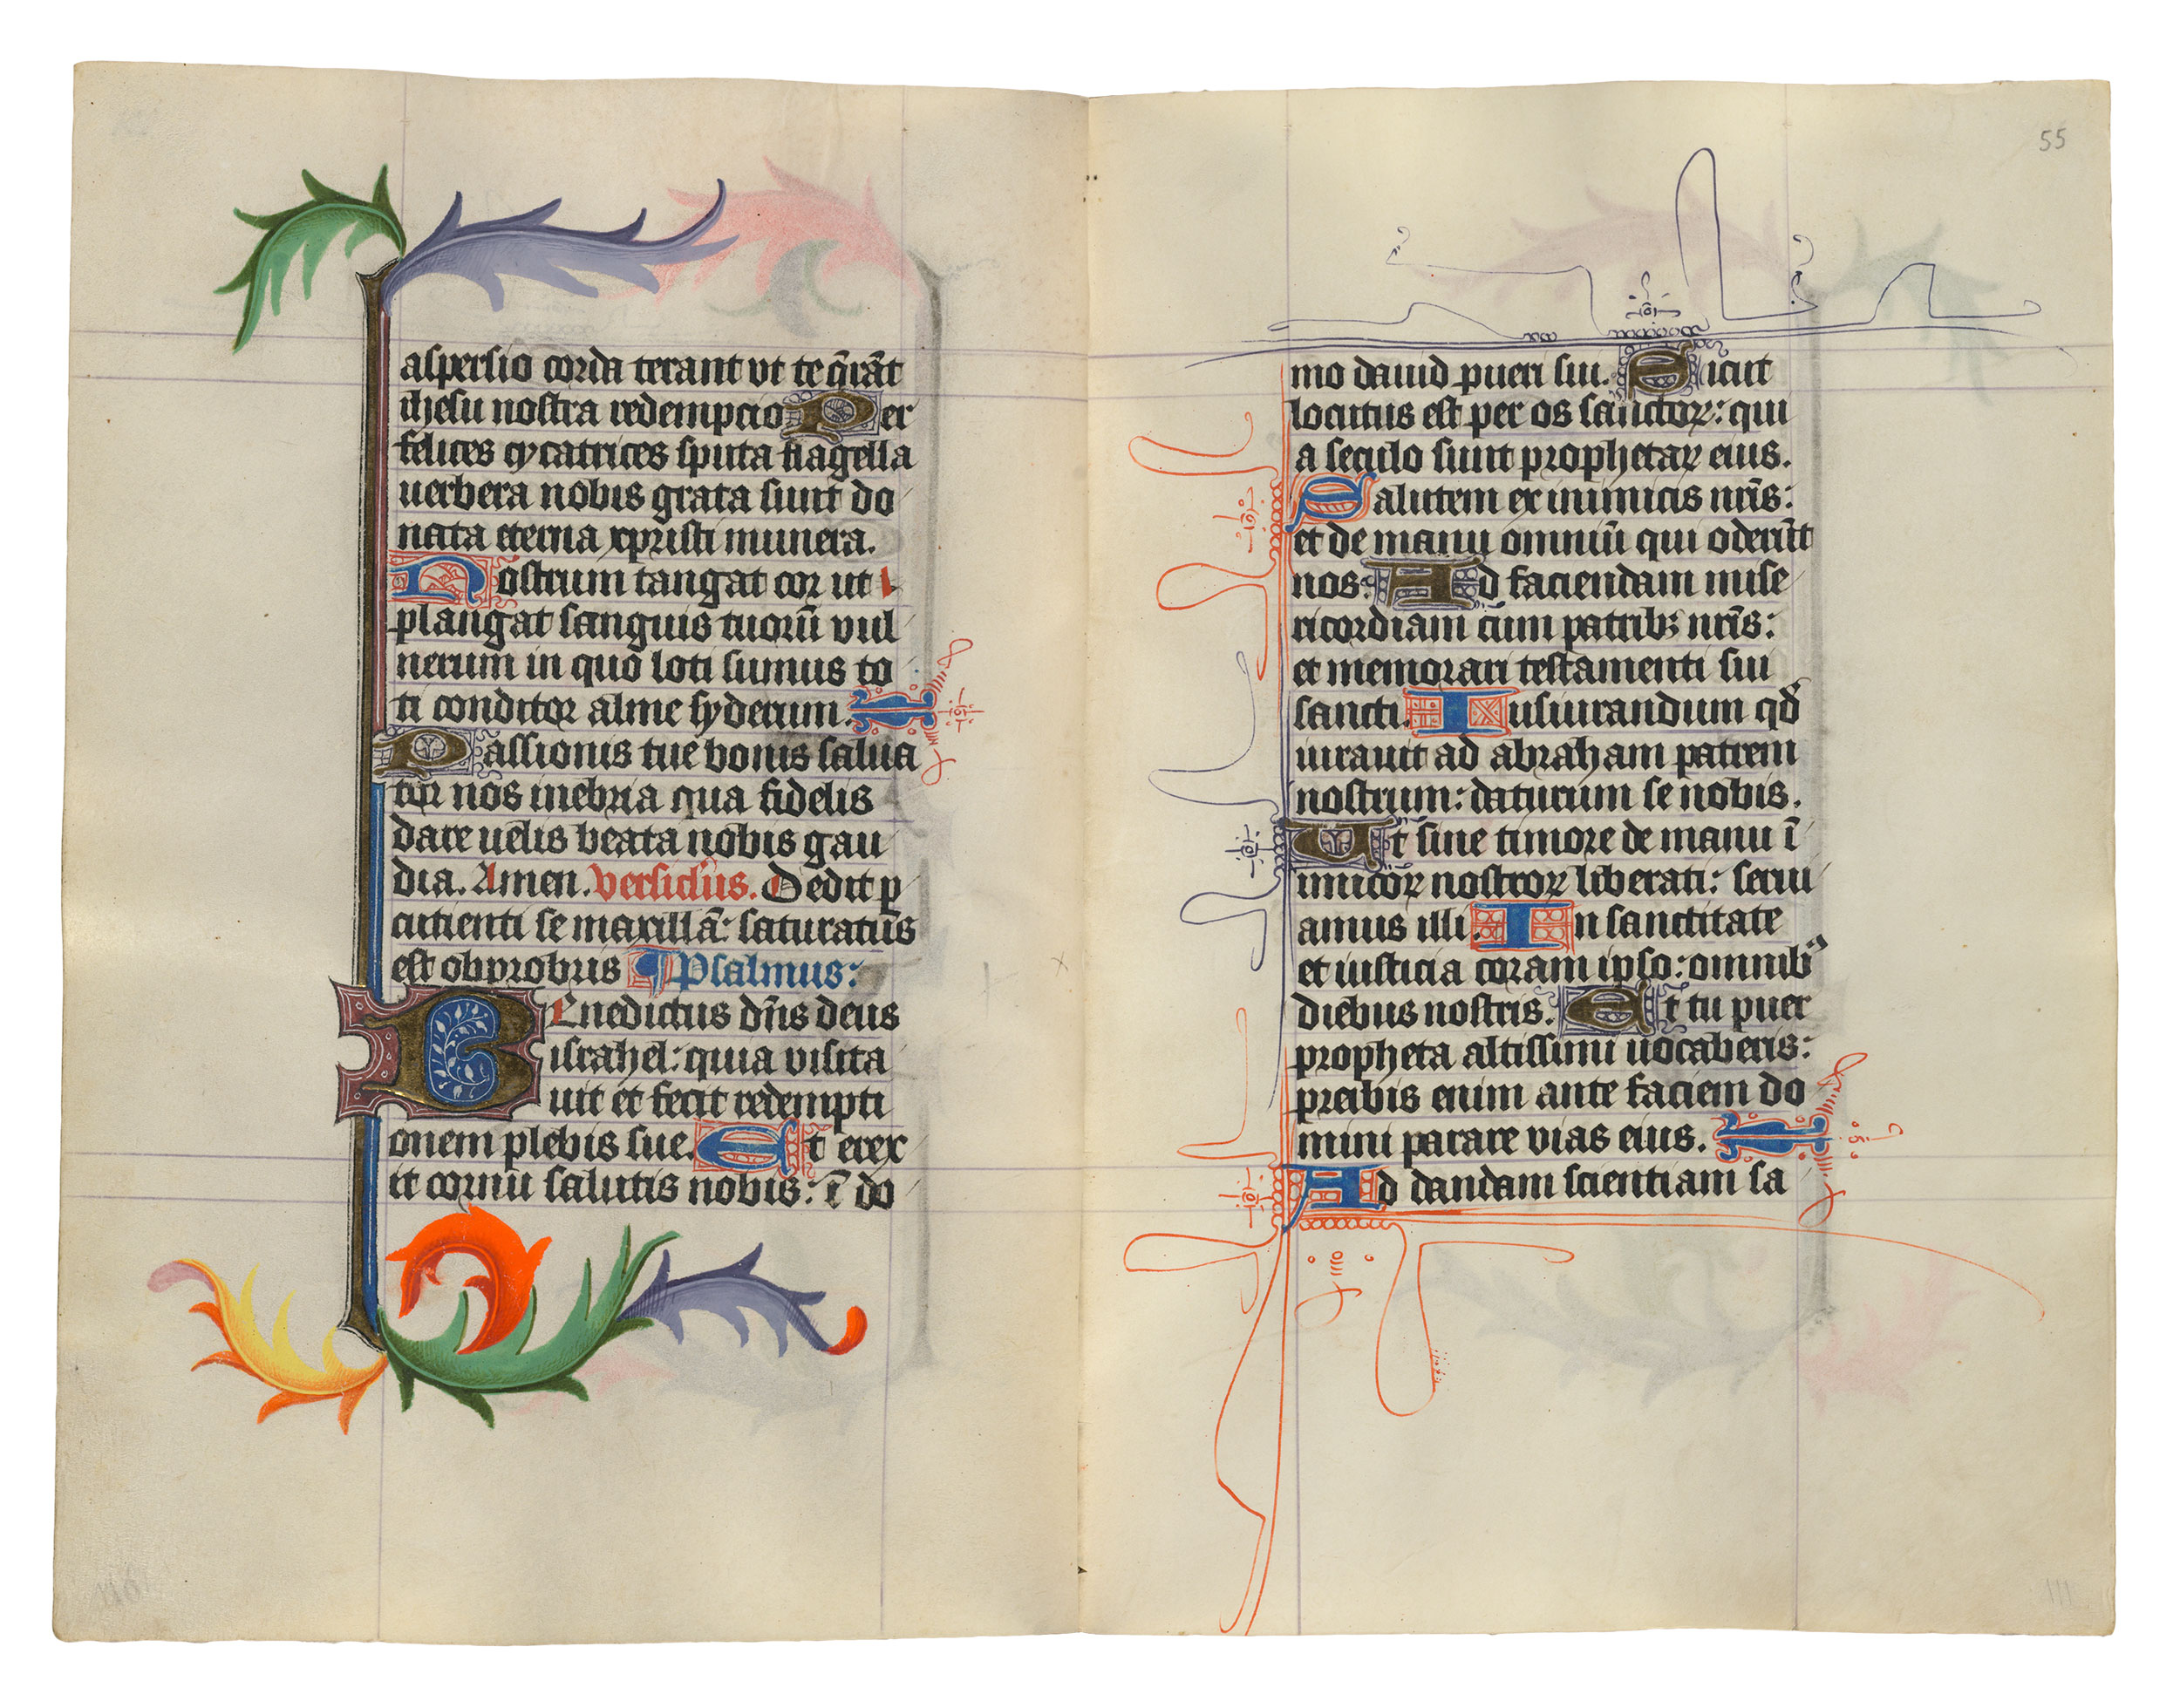 aspersio corda terant vt te q̄rāt
ihesu nostra redempcio Per
felices cycatrices sputa flagella
uerbera nobis grata sunt do
nata eterna xpristi munera.
Nostrum tangat cor ut
plangat sanguis tuorū vul
nerum in quo loti sumus to
ti conditor alme syderum.
Passionis tue bonis salua
tor nos inebria qua fidelis
date uelis beata nobis gau
dia. Amen. versiculus. Dedit ꝑ
cutienti se maxillā: saturatus
est obprobriis ¶ Psalmus:
BEnedictus dn̄s deus
israhel: quia visita
uit et fecit redempti
onem plebis sue. Et erex
it cornu salutis nobis: ī do
55
mo dauid pueri sui. Sicut
locutus est per os sanctoꝝ: qui
a seculo sunt prophetaꝝ eius.
Salutem ex inimicis nr̄is:
et de manu omniū qui oderūt
nos: Ad faciendam mise
ricordiam cum patribꝫ nr̄is:
et memorari testamenti sui
sancti. Iusiurandum qd̄
iurauit ad abraham patrem
nostrum: daturum se nobis.
Ut sine timore de manu ī
imicoꝝ nostroꝝ liberati: serui
amus illi. In sanctitate
et iusticia coram ipso: omnibꝰ
diebus nostris. Et tu puer
propheta altissimi uocaberis:
preibis enim ante faciem do
mini parare vias eius.
Ad dandam scientiam sa